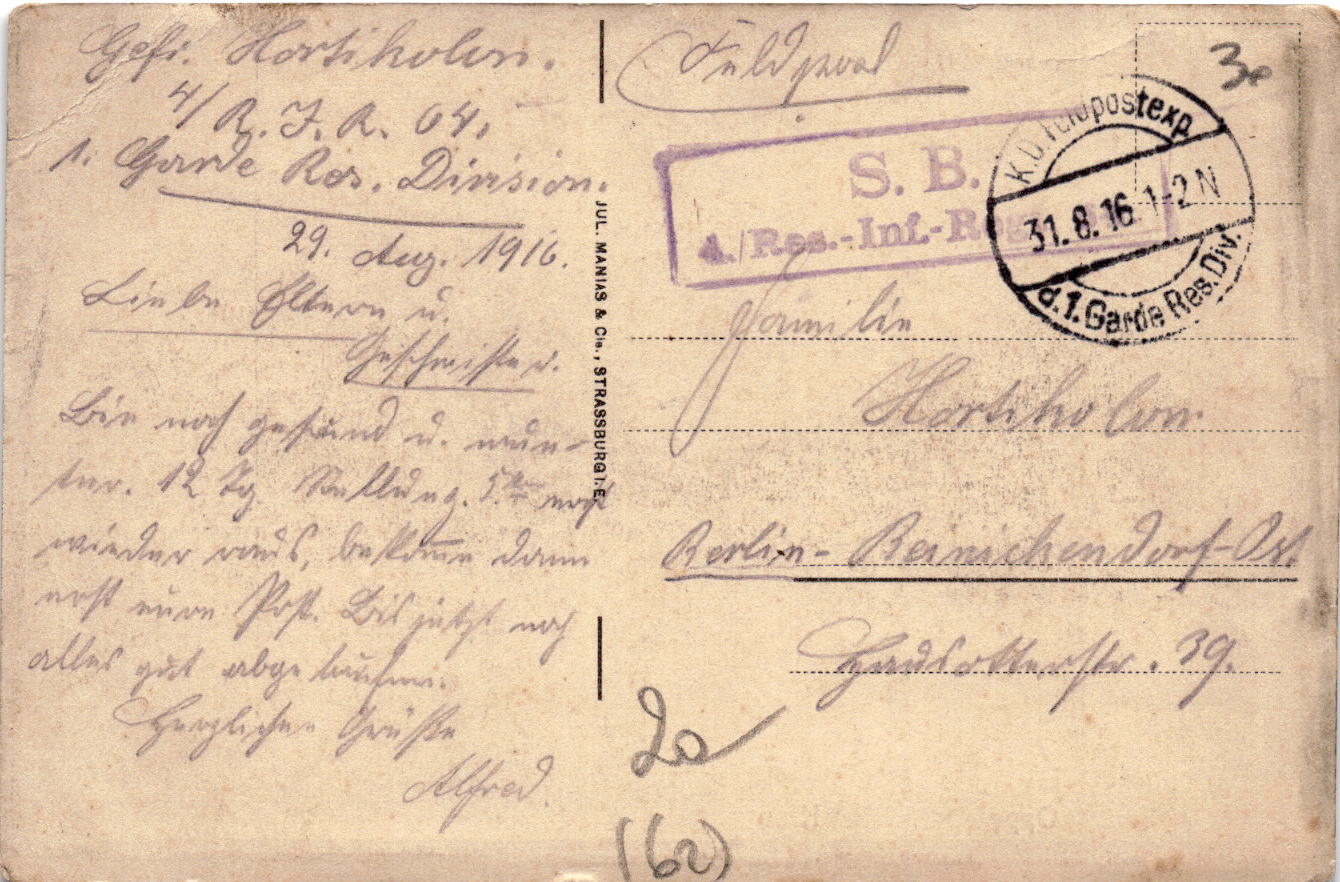 Gefr. Hortikolon.
4/R.I.R. 64.
1. Garde Res. Division.
29. Aug. 1916.
Liebe Eltern u.
Geschwister.
Bin noch gesund u. mun-
ter. 12 Tg. Stellung. 5. 
wieder raus, bekomme dann
erst eure Post. Bis jetzt noch
alles gut abgelaufen.
Herzlichen Grüße
Alfred.
JUL. MANIAS & Cie., STRASSBURG i. E.
Feldpost
3e
S. B.
4./Res.-Inf.-Reg.
K.D. Feldpostexp.
31.8.16 1-2 N
d. 1. Garde Res. Div.
Familie
Hortikolon.
Berlin-Reinickendorf-Ost.
Hausotterstr. 39.
20
(62)